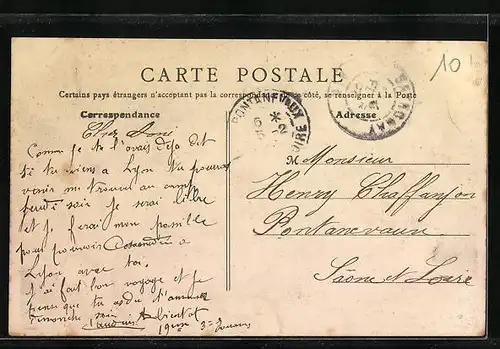 10
CARTE POSTALE
Certains pays étrangers n'acceptant pas la correspondance de ce côté, se renseigner à la Poste
Correspondance
Adresse
PONTANEVAUX
Cher Ami
Comme je te l'avais déjà dit
si tu viens à Lyon tu pourras
venir me trouver au
soir je serai libre
et je ferai mon possible
pour pouvoir descendre à
Lyon avec toi.
J'ai fait bon voyage et je
pense que tu as dû t'amuser
dimanche soir
A bientôt
M Monsieur
Henry Chaffanjon
Pontanevaux
Saône et Loire